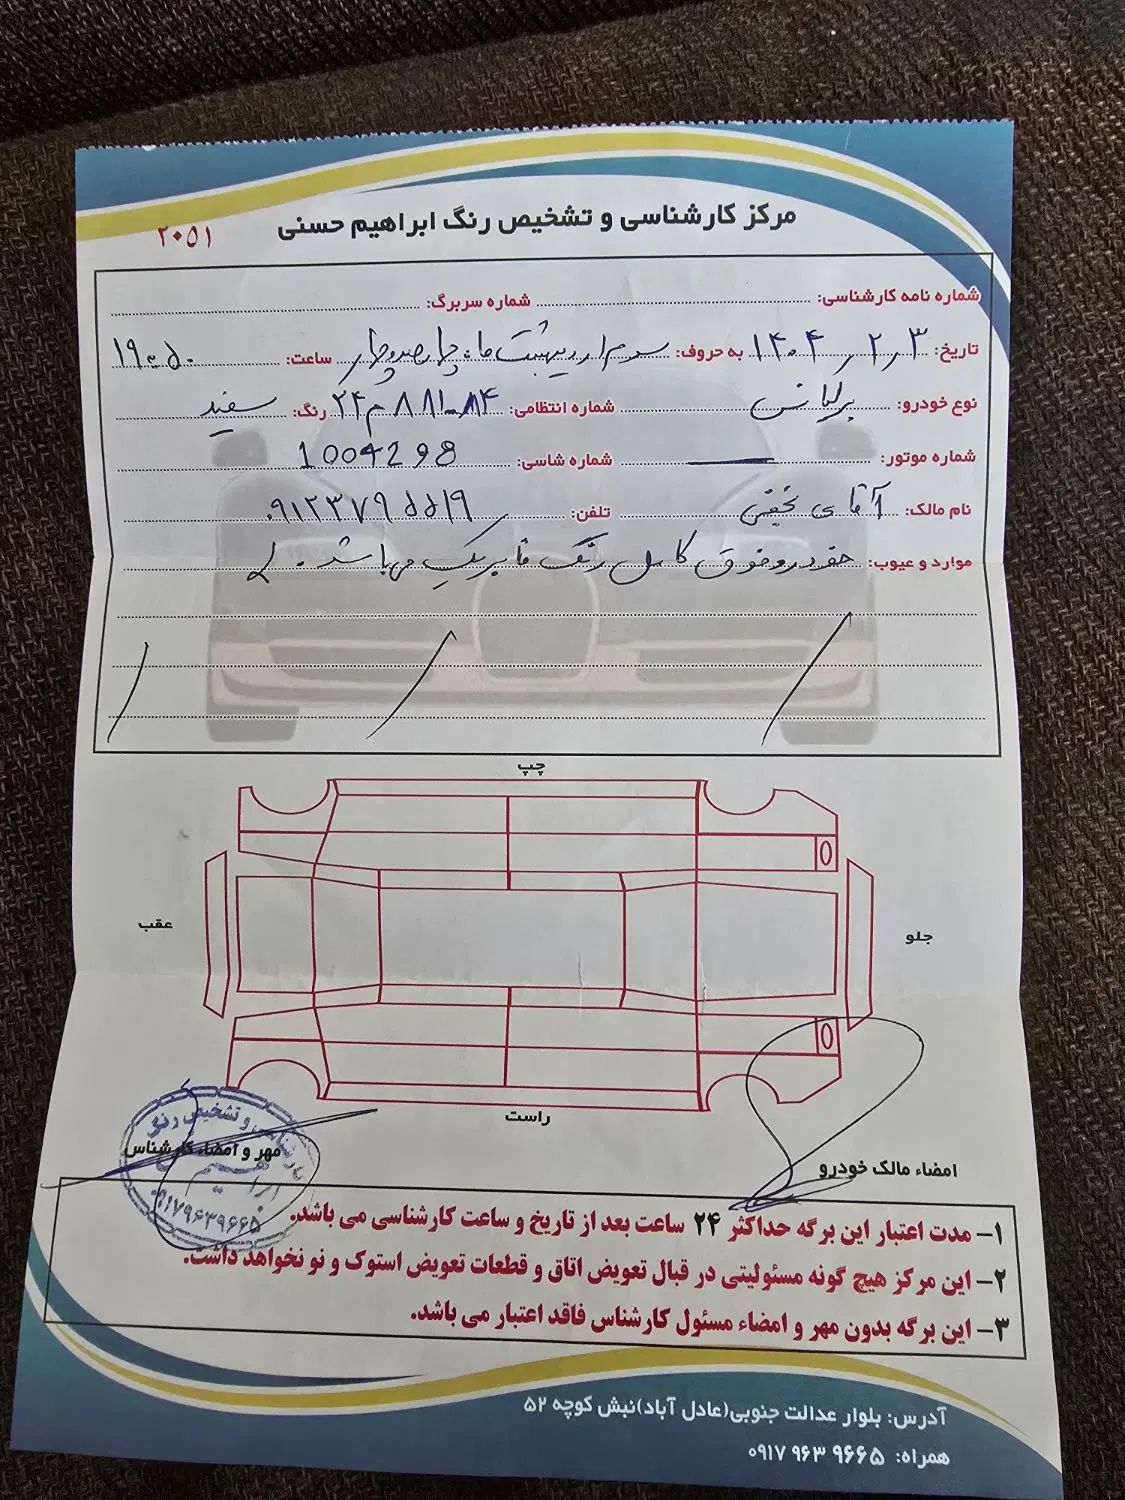 مرکز کارشناسی و تشخیص رنگ ابراهیم حسنی
۲۰۵۱
شماره نامه کارشناسی: شماره سربرگ:
تاریخ: ۱۴۰۴٫۲٫۳ به حروف: سوم اردیبهشت ماه چهارصدوچهار ساعت: ۱۹:۵۰
نوع خودرو: برلیانس شماره انتظامی: ۲۴م۸۸۱-۸۴ رنگ: سفید
شماره موتور: شماره شاسی: 1004298
نام مالک: آقای تلفن: ۰۹۱۲۳۷۹۵۵۱۹
موارد و عیوب: خودرو فوق کامل رنگ فابریک میباشد.
چپ
عقب
جلو
راست
مهر و امضاء کارشناس
امضاء مالک خودرو
کارشناسی و تشخیص رنگ
ابراهیم
۰۹۱۷۹۶۳۹۶۶۵
۱- مدت اعتبار این برگه حداکثر ۲۴ ساعت بعد از تاریخ و ساعت کارشناسی می باشد.
۲- این مرکز هیچ گونه مسئولیتی در قبال تعویض اتاق و قطعات تعویض استوک و نو نخواهد داشت.
۳- این برگه بدون مهر و امضاء مسئول کارشناس فاقد اعتبار می باشد.
آدرس: بلوار عدالت جنوبی(عادل آباد)نبش کوچه ۵۲
همراه: ۰۹۱۷ ۹۶۳ ۹۶۶۵